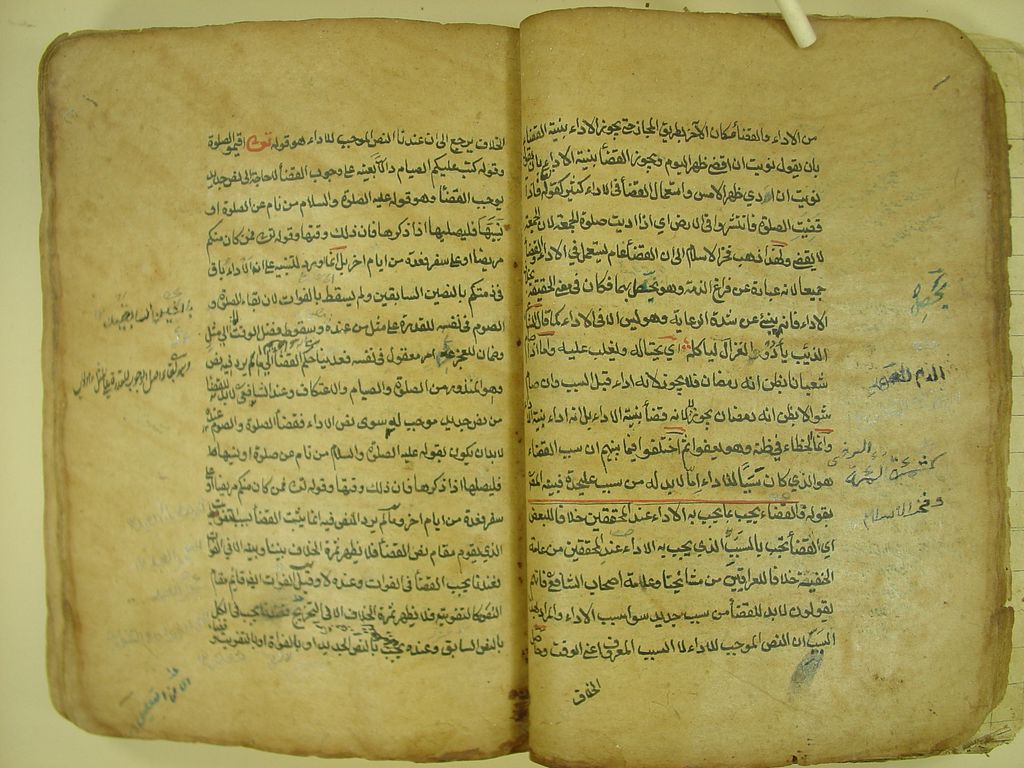 من الاداء والقضاء مكان الآخر بطريق المجاز حتى يجوز الاداء بنية القضاء
بان يقول نويت ان اقضي ظهر اليوم ويجوز القضا بنية الاداء بان يقول
نويت ان اودي ظهر الامس واستعمال القضا في الاداء كثير كقوله فاذا
قضيت الصلوة فانتشروا في الارض اي اذا اديت صلوة الجمعة لان الجمعة
لا يقضى ولهذا ذهب فخر الاسلام الى ان القضا عام يستعمل في الاداء والقضا
جميعا لانه عبارة عن فراغ الذمة وهو يحصل بهما فكان في معنى الحقيقة
الاداء فانه ينبئ عن شدة الرعاية وهو ليس الا في الاداء كما قال
الذئب يأدو الغزال ليأكله اي يحتال له ويغلب عليه ولهذا اذا صام
شعبان بظن انه رمضان فلا يجوز لانه اداء قبل السبب وان صام
شوالا بظن انه رمضان يجوز لا لانه قضا بنية الاداء بل لانه اداء بنية
وانما الخطاء في ظنه وهو معفو ثم اختلفوا فيما بينهم ان سبب القضاء
هو الذي كان سببا للاداء ام لا بد له من سبب عليحدة فبينه المص
بقوله والقضاء يجب بما يجب به الاداء عند المحققين خلافا للبعض
اي القضا يجب بالسبب الذي يجب به الاداء عند المحققين من عامة
الحنفية خلافا للعراقيين من مشائخنا وعامة اصحاب الشافعي فانهم
يقولون لا بد للقضا من سبب جديد سوا سبب الاداء والمراد بهذا
السبب ان النص الموجب للاداء لا السبب المعروف اعني الوقت وحاصل
الخلاف
يحصل
شمس الائمة السرخسي
وفخر الاسلام
الخلاف يرجع الى ان عندنا النص الموجب للاداء هو قوله تعالى اقيموا الصلوة
وقوله كتب عليكم الصيام دال بعينه على وجوب القضا لا حاجة الى نص جديد
يوجب القضا وهو قوله عليه الصلوة والسلام من نام عن الصلوة او
نسيها فليصليها اذا ذكرها فان ذلك وقتها وقوله تعالى فمن كان منكم
مريضا او على سفر فعدة من ايام اخر بل انما ورد للتنبيه على ان الاداء باق
في ذمتكم بالنصين السابقين ولم يسقط بالفوات لان بقاء الصلوة و
الصوم في نفسه للقدرة على مثل من عنده وسقوط فضل الوقت لا الى مثل
وضمان للعجز عنه امر معقول في نفسه فعدينا حكم القضا الى ما لم يرد فيه نص
وهو المنذور من الصلوة والصيام والاعتكاف وعند الشافعي لا بد للقضا
من نص جديد موجب له سوى نص الاداء فقضا الصلوة والصوم عنده
لا بد ان يكون بقوله عليه الصلوة والسلام من نام عن صلوة او نسيها
فليصلها اذا ذكرها فان ذلك وقتها وقوله تعالى فمن كان منكم مريضا او على
سفر فعدة من ايام اخر وما لم يرد النص فيه انما يثبت القضا بسبب التفويت
الذي يقوم مقام نص القضا فلا يظهر ثمرة الخلاف بيننا وبينه الا في الفوات
فعندنا يجب القضا في الفوات وعنده لا وقيل الفوات ايضا قائم مقام
النص كالتفويت فلا يظهر ثمرة الخلاف الا في التخريج فعندنا يجب في الكل
بالنص السابق وعنده يجب بالنص الجديد او بالفوات او بالتفويت